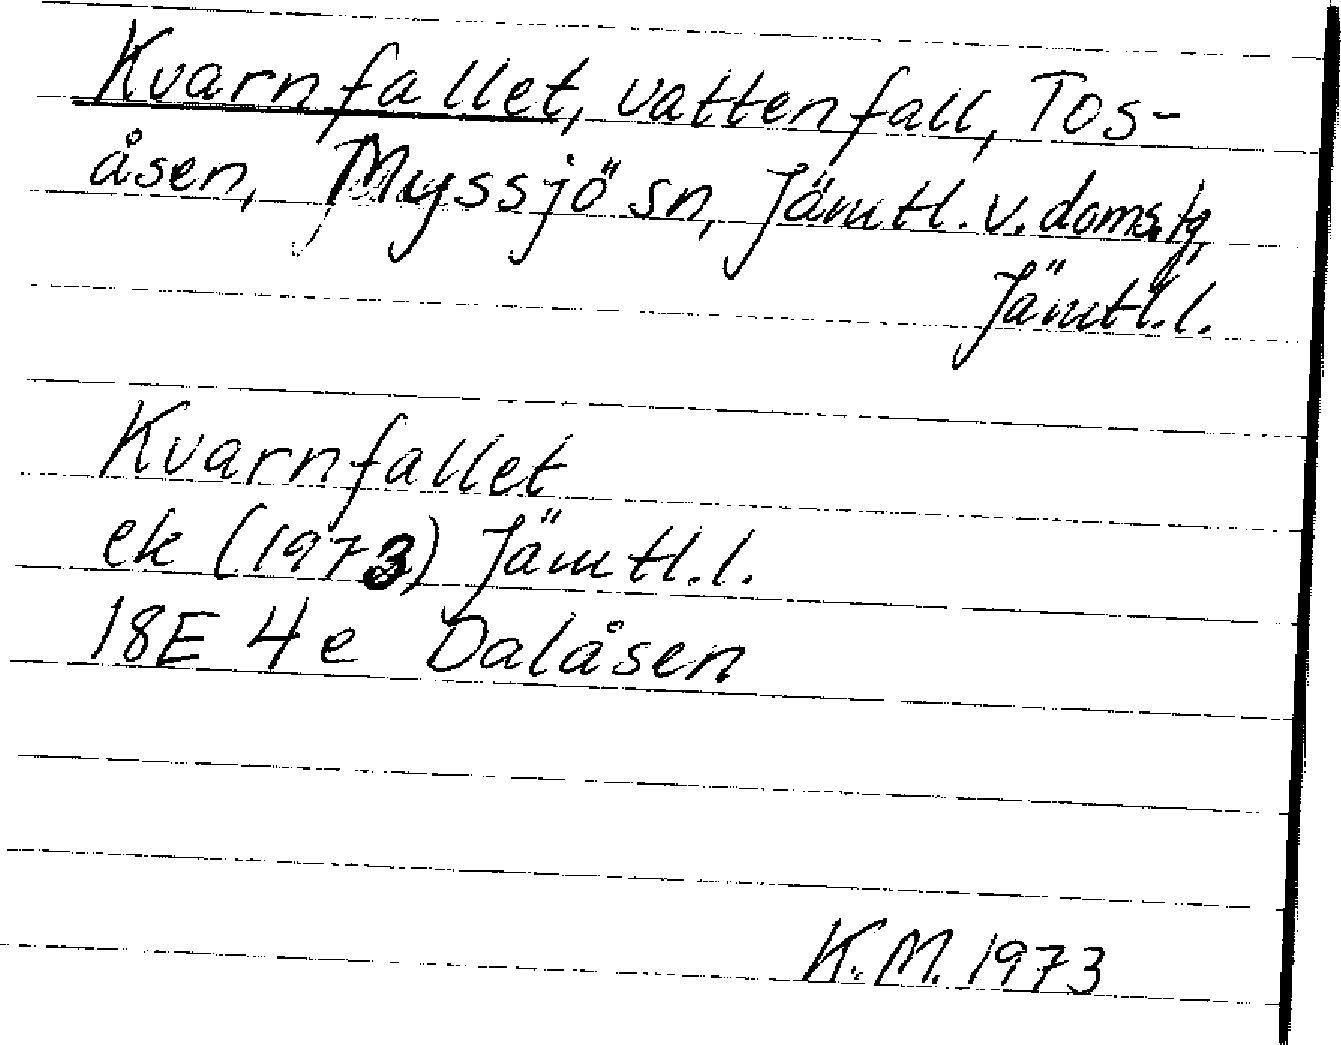 Kvarnfallet, vattenfall, Tos-
åsen, Myssjö sn, Jämtl. v. doms.lg,
Jämtl.l.
Kvarnfallet
ek (1973) Jämtl.l.
18E 4e Dalåsen
K.M. 1973